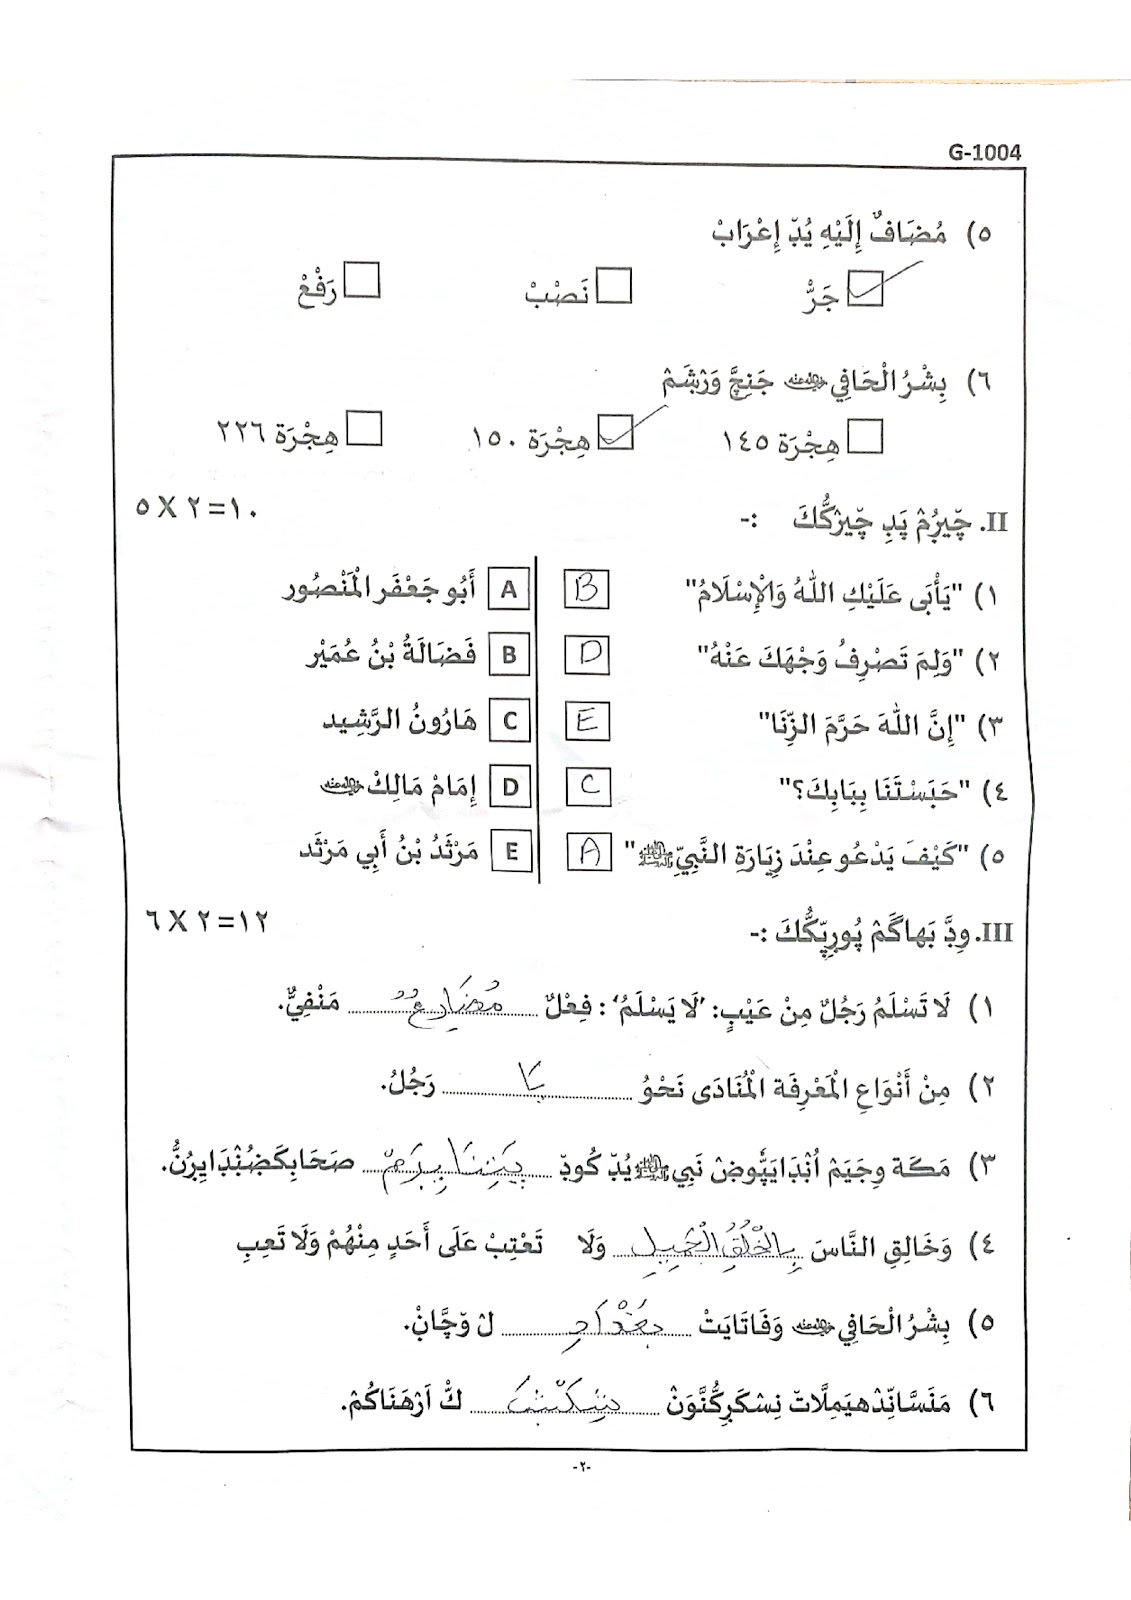 G-1004
٥) مُضَافٌ إِلَيْهِ يُڊِّ إِعْرَابْ
جَرُّ نَصْبْ رَفْعْ
٦) بِشْرُ الْحَافِي رضي الله عنه جَنِچَّ وَرْشَمْ
هِجْرَة ١٤٥ هِجْرَة ١٥٠ هِجْرَة ٢٢٦
II. چّيرُمْ پَدِ چّيرْكُّكَ :- ٥ X ٢=١٠
١) "يَأْبَى عَلَيْكِ اللهُ وَالْإِسْلَامُ" B A أَبُو جَعْفَر الْمَنْصُور
٢) "وَلِمَ تَصْرِفُ وَجْهَكَ عَنْهُ" D B فَضَالَةُ بْنُ عُمَيْر
٣) "إِنَّ اللهَ حَرَّمَ الزِّنَا" E C هَارُونُ الرَّشِيد
٤) "حَبَسْتَنَا بِبَابِكَ؟" C D إِمَامْ مَالِكْ رضي الله عنه
٥) "كَيْفَ يَدْعُو عِنْدَ زِيَارَةِ النَّبِيِّ ﷺ" A E مَرْثَدُ بْنُ أَبِي مَرْثَد
III. وِڊَّ بَهاگَمْ پُورِپِّكُّكَ :- ٦ X ٢=١٢
١) لَا تَسْلَمُ رَجُلٌ مِنْ عَيْبٍ: 'لَا يَسْلَمُ' : فِعْلٌ مُضَارِعٌ مَنْفِيٌّ.
٢) مِنْ أَنْوَاعِ الْمَعْرِفَة الْمُنَادَى نَحْوُ يَا رَجُلُ.
٣) مَكَة وِجَيَمْ أُنْدَايَپُّوضْ نَبِي ﷺ يُڊِّ كُوڊِّ پَتِنَايِرَمْ صَحَابِكَضُنْدَايِرُنُّ.
٤) وَخَالِقِ النَّاسَ بِالْخُلُقِ الْجَمِيلِ وَلَا تَعْتِبْ عَلَى أَحَدٍ مِنْهُمْ وَلَا تَعِبِ
٥) بِشْرُ الْحَافِي رضي الله عنه وَفَاتَايَتْ بَغْدَادِ لْ وَچَّانْ.
٦) مَنَسَّانِّدْهيَمِلَّاتّ نِسْكَرِكُّنَّوَنْ كُّ اَرْهَنَاكُمْ.
-٢-